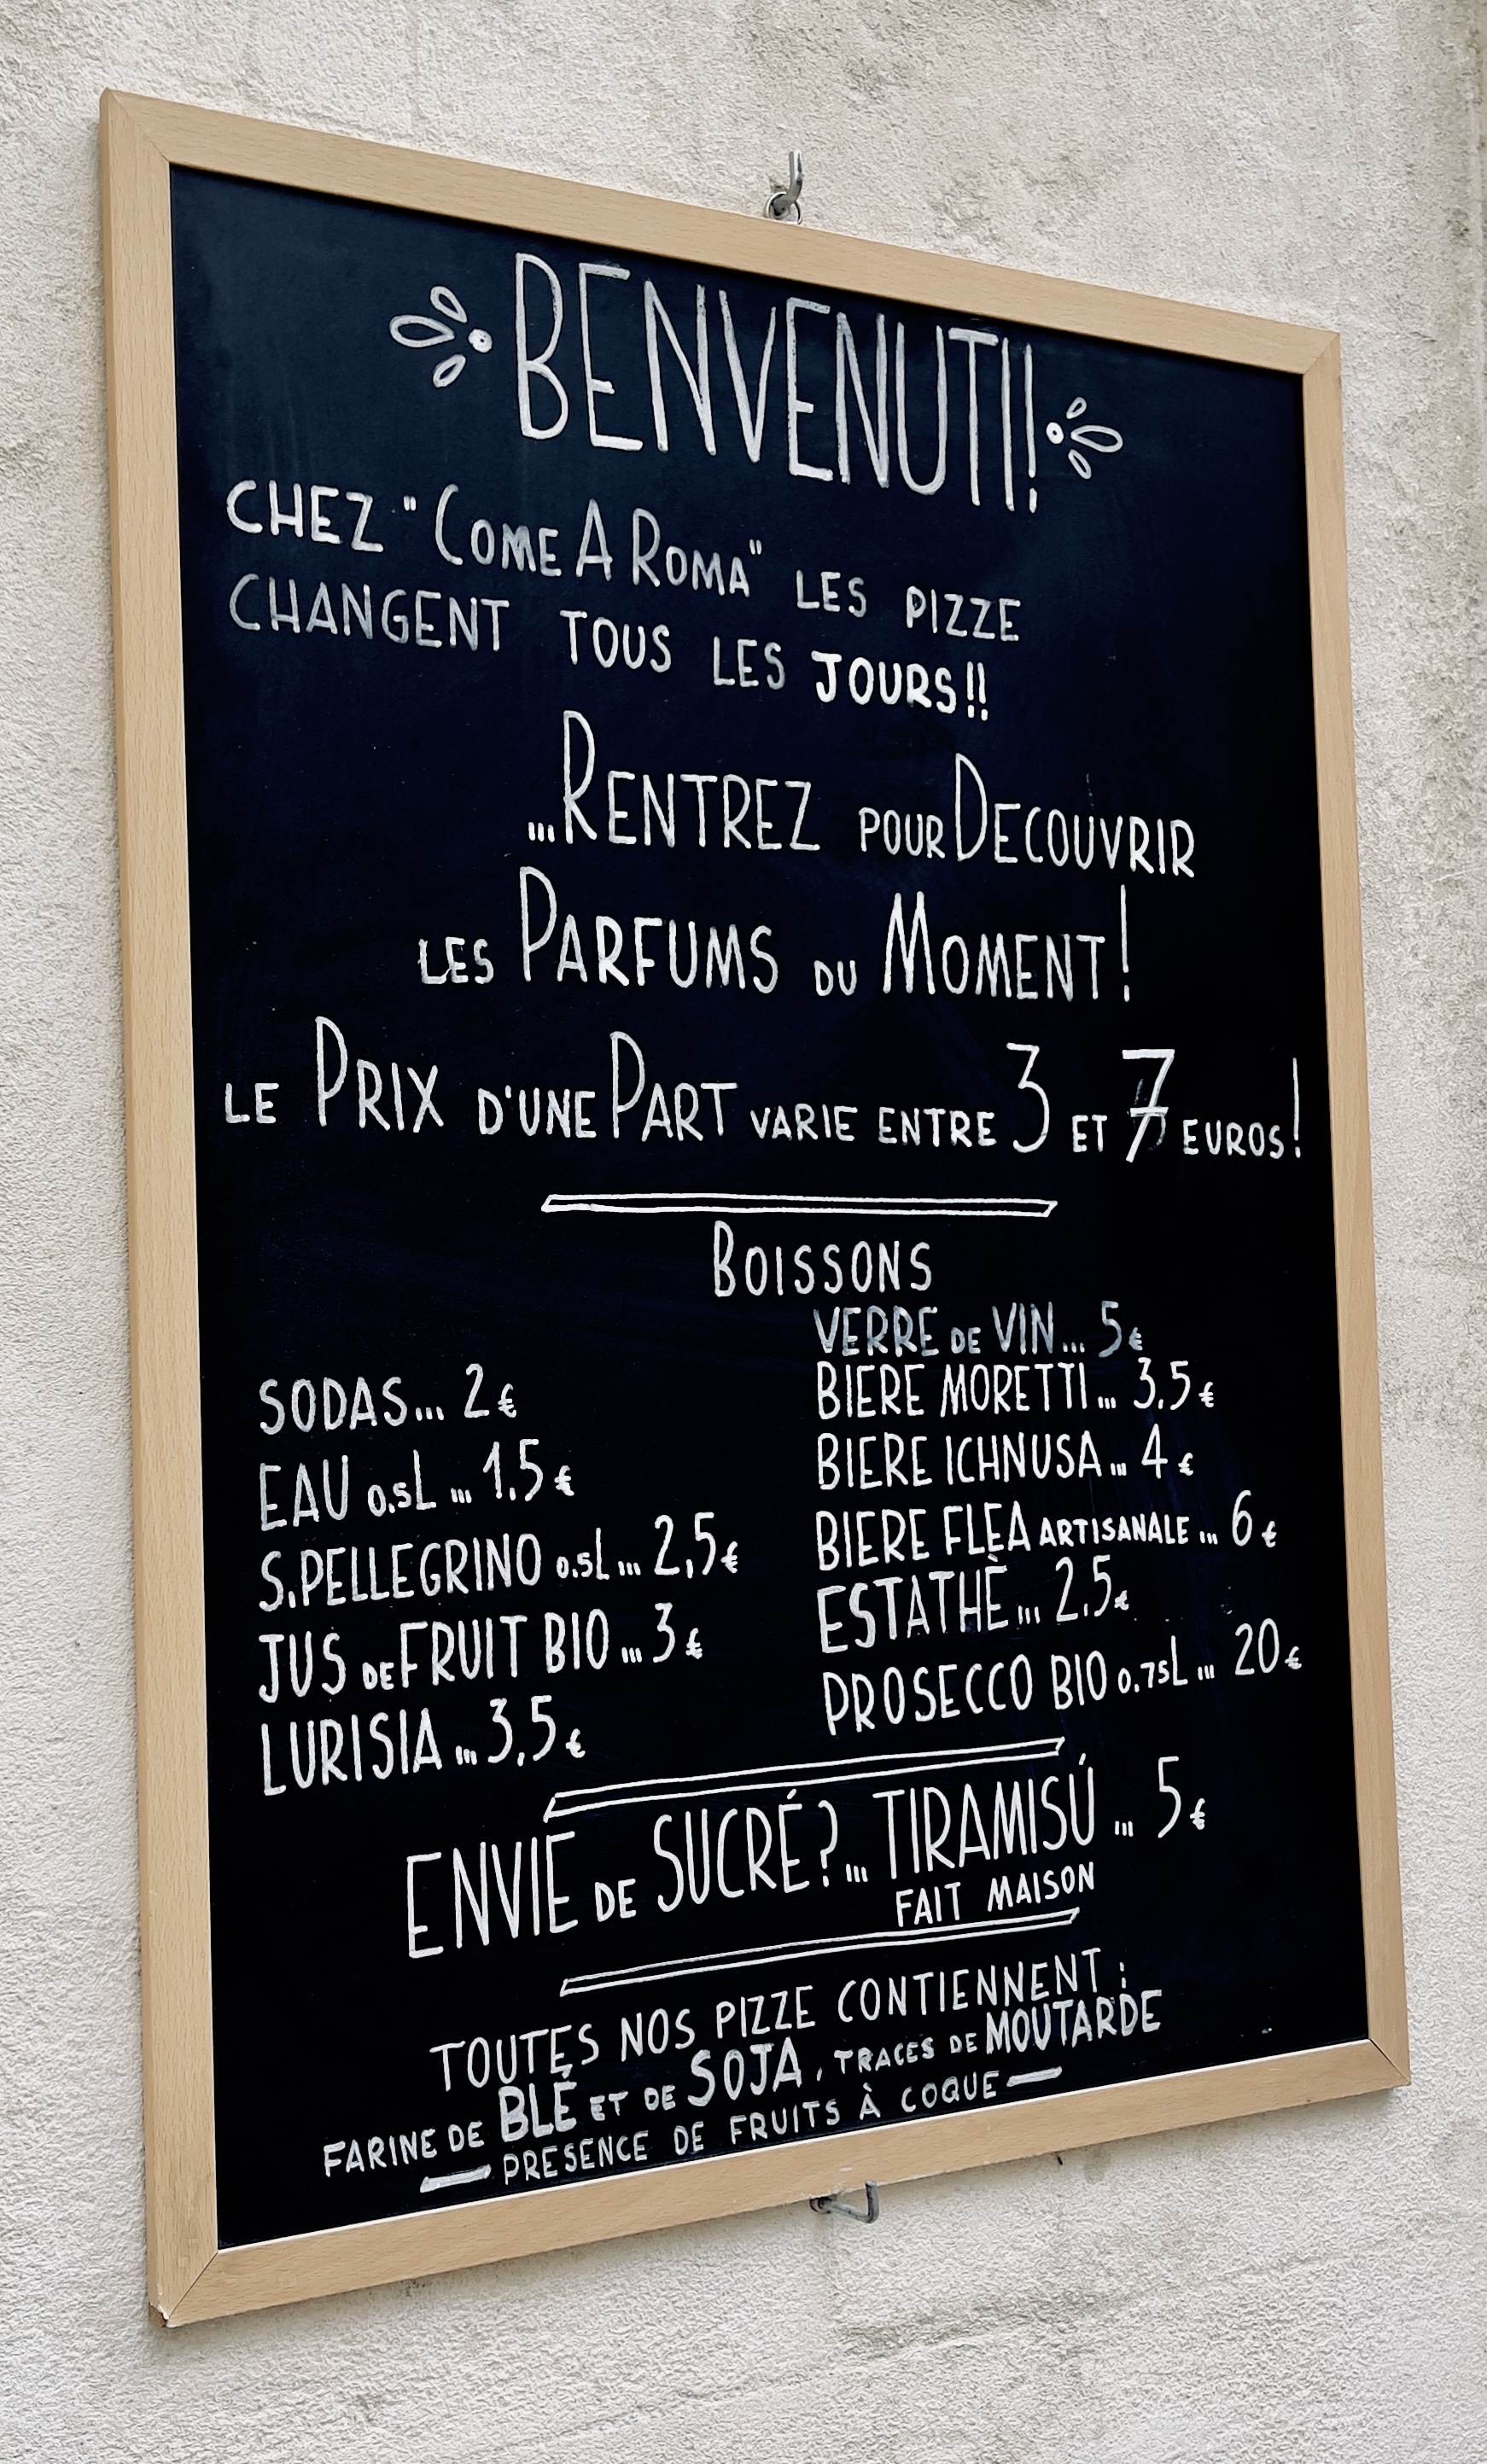 BENVENUTI!
CHEZ "COME A ROMA" LES PIZZE
CHANGENT TOUS LES JOURS!!
...RENTREZ POUR DECOUVRIR
LES PARFUMS DU MOMENT!
LE PRIX D'UNE PART VARIE ENTRE 3 ET 7 EUROS!
BOISSONS
SODAS... 2€
EAU 0.5L ... 1.5€
S.PELLEGRINO 0.5L... 2,5€
JUS DE FRUIT BIO ... 3€
LURISIA ... 3,5€
VERRE DE VIN... 5€
BIERE MORETTI ... 3.5€
BIERE ICHNUSA ... 4€
BIERE FLEA ARTISANALE ... 6€
ESTATHÈ ... 2.5€
PROSECCO BIO 0.75L ... 20€
ENVIE DE SUCRÉ?... TIRAMISÚ ... 5€
FAIT MAISON
TOUTES NOS PIZZE CONTIENNENT :
FARINE DE BLÉ ET DE SOJA, TRACES DE MOUTARDE
— PRESENCE DE FRUITS À COQUE —